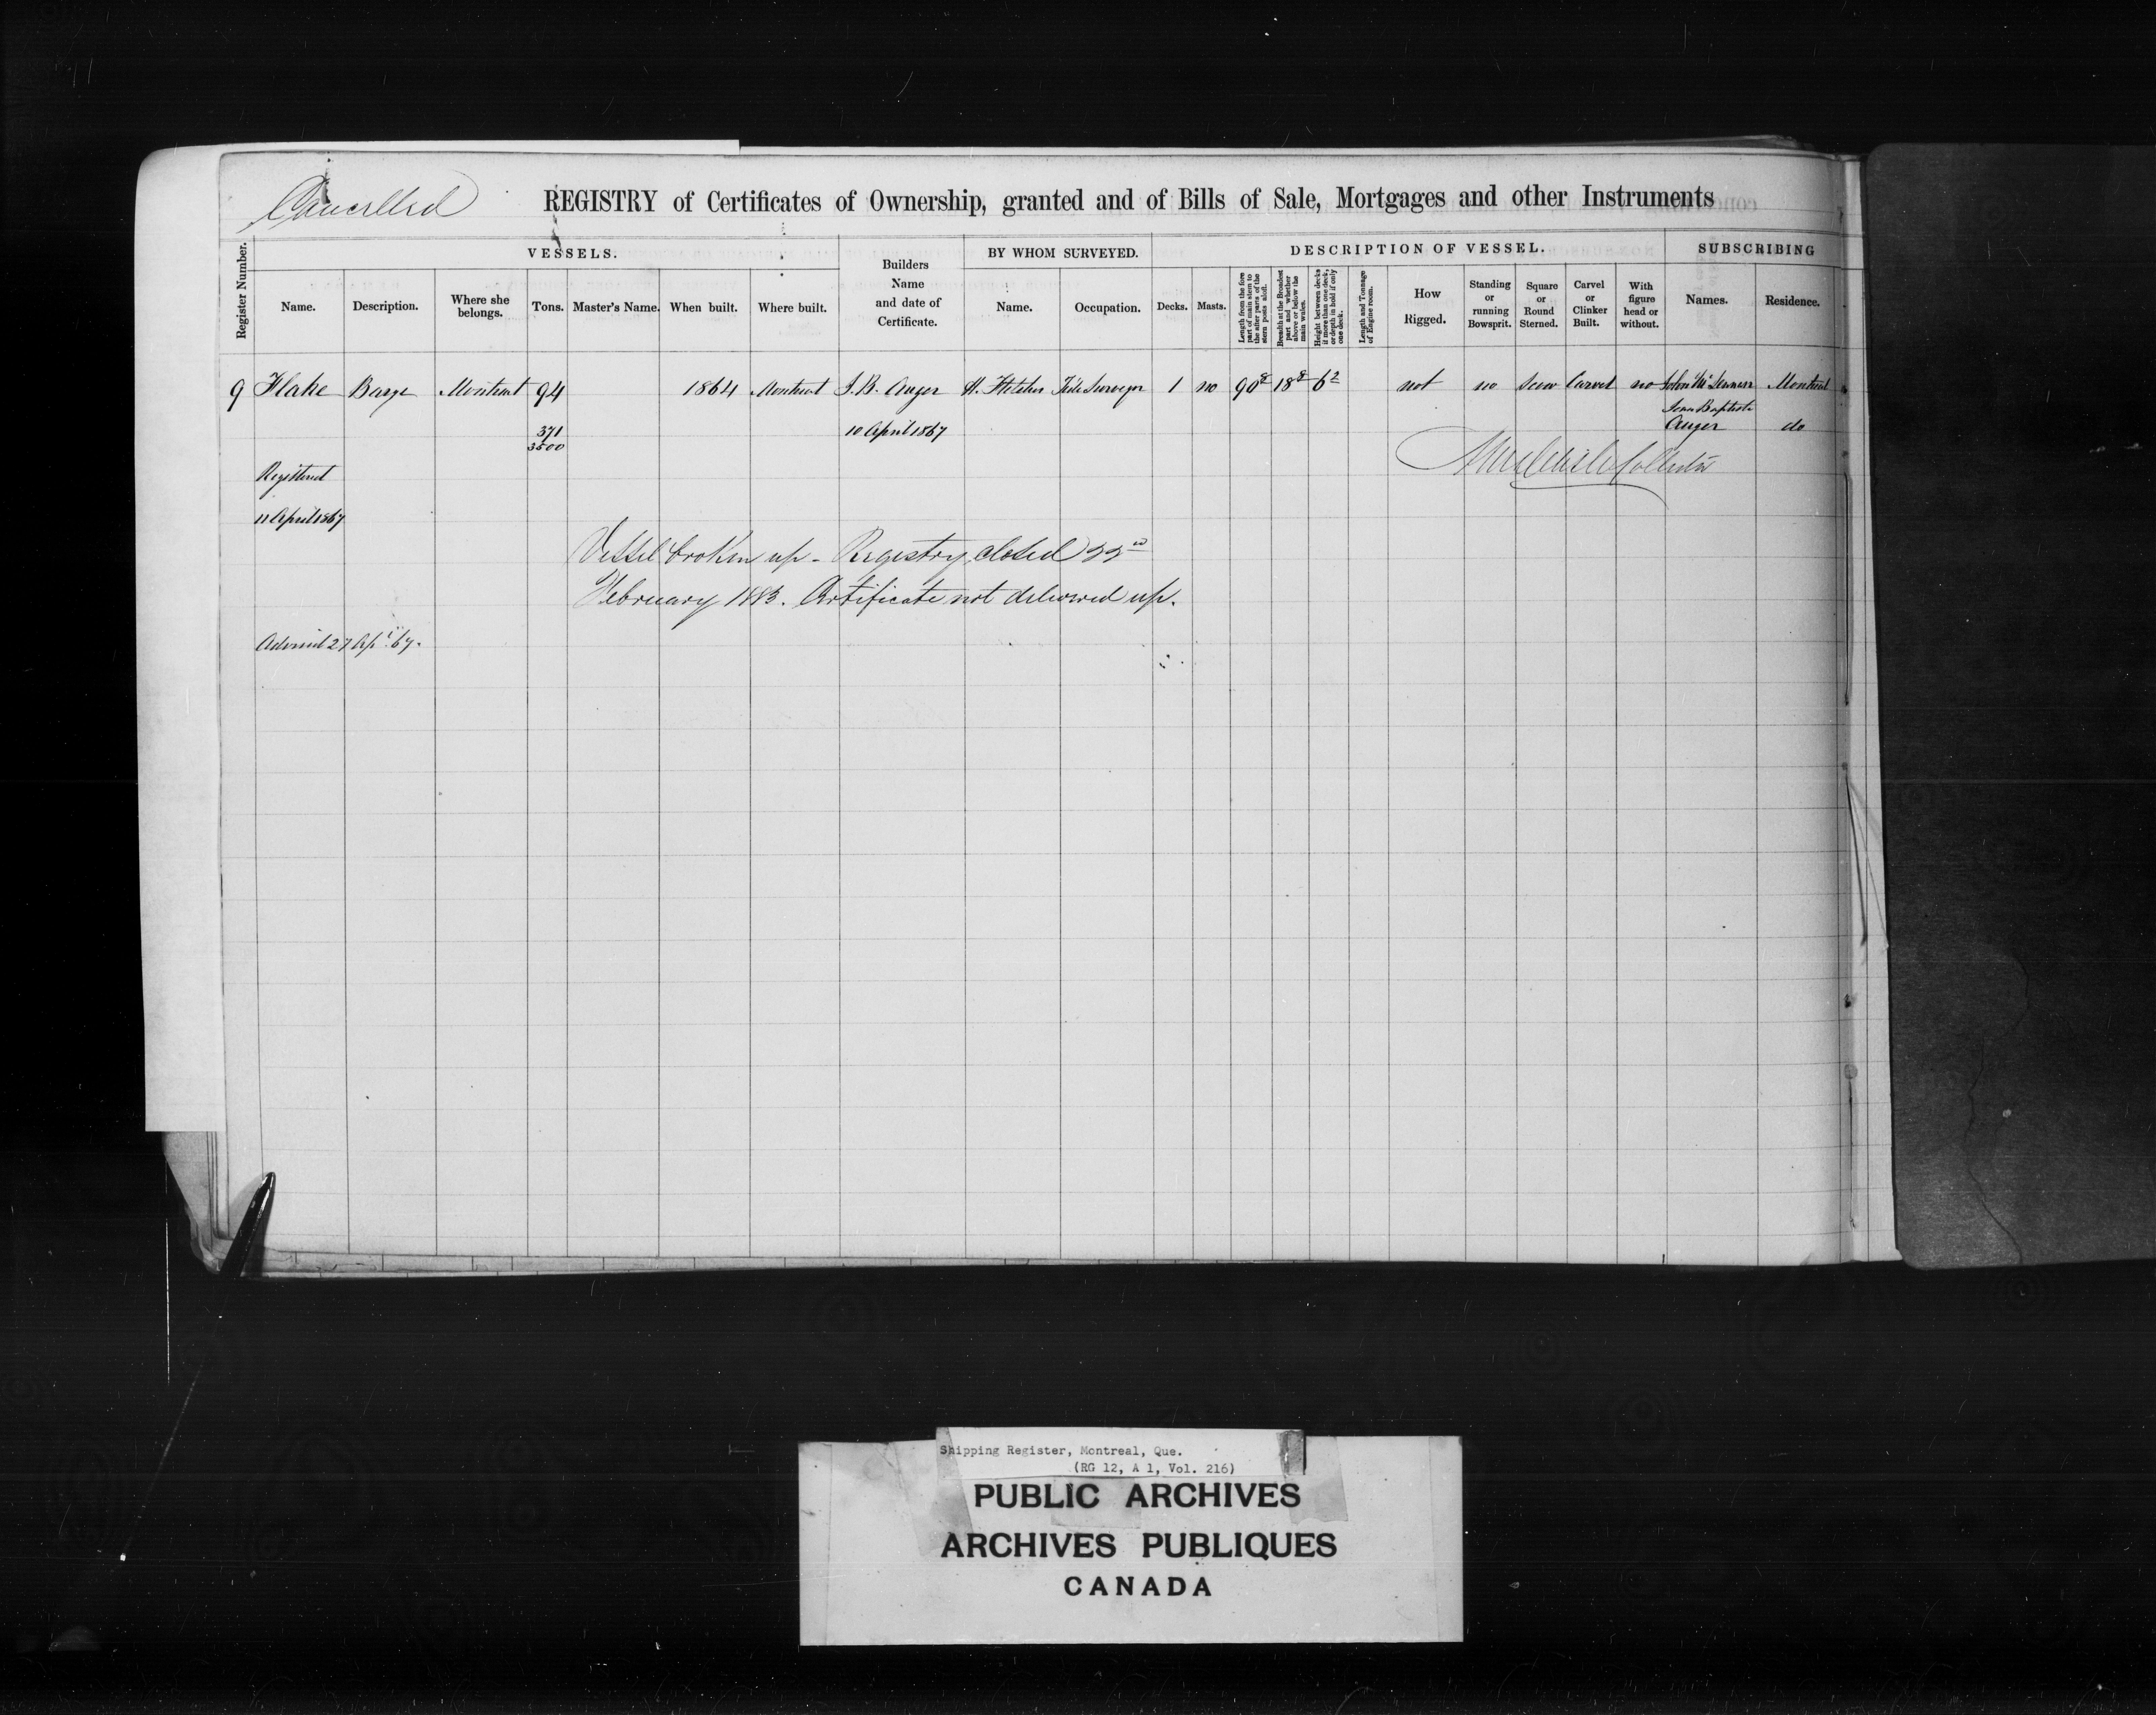 Cancelled
REGISTRY of Certificates of Ownership, granted and of Bills of Sale, Mortgages and other Instruments
Register Number.
VESSELS.
Name.
Description.
Where she belongs.
Tons.
Master's Name.
When built.
Where built.
Builders
Name
and date of
Certificate.
BY WHOM SURVEYED.
Name.
Occupation.
DESCRIPTION OF VESSEL.
Decks.
Masts.
Length from the fore
part of main stem to
the after parts of the
stern posts aloft.
Breadth at the Broadest
part and whether
above or below the
main wales.
Height between decks
if more than one deck,
or depth in hold if only
one deck.
Length and Tonnage
of Engine room.
How
Rigged.
Standing
or
running
Bowsprit.
Square
or
Round
Sterned.
Carvel
or
Clinker
Built.
With
figure
head or
without.
SUBSCRIBING
Names.
Residence.
9 Flake Barge Montreal 94 1864 Montreal J. B. Auger H. Fletcher Tide Surveyor 1 no 90 8 18 8 6 2 not no Scow Carvel no Montreal
Jean Baptiste
371
3500
10 April 1867
Auger do
Collector
Registered
11 April 1867
Vessel broken up - Registry closed 22nd
February 1883. Certificate not delivered up.
27 Apl. 67.
Shipping Register, Montreal, Que.
(RG 12, A 1, Vol. 216)
PUBLIC ARCHIVES
ARCHIVES PUBLIQUES
CANADA